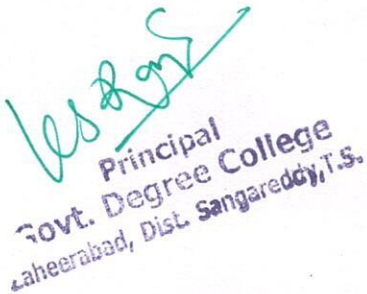 Principal
Govt. Degree College
Zaheerabad, Dist. Sangareddy, T.S.